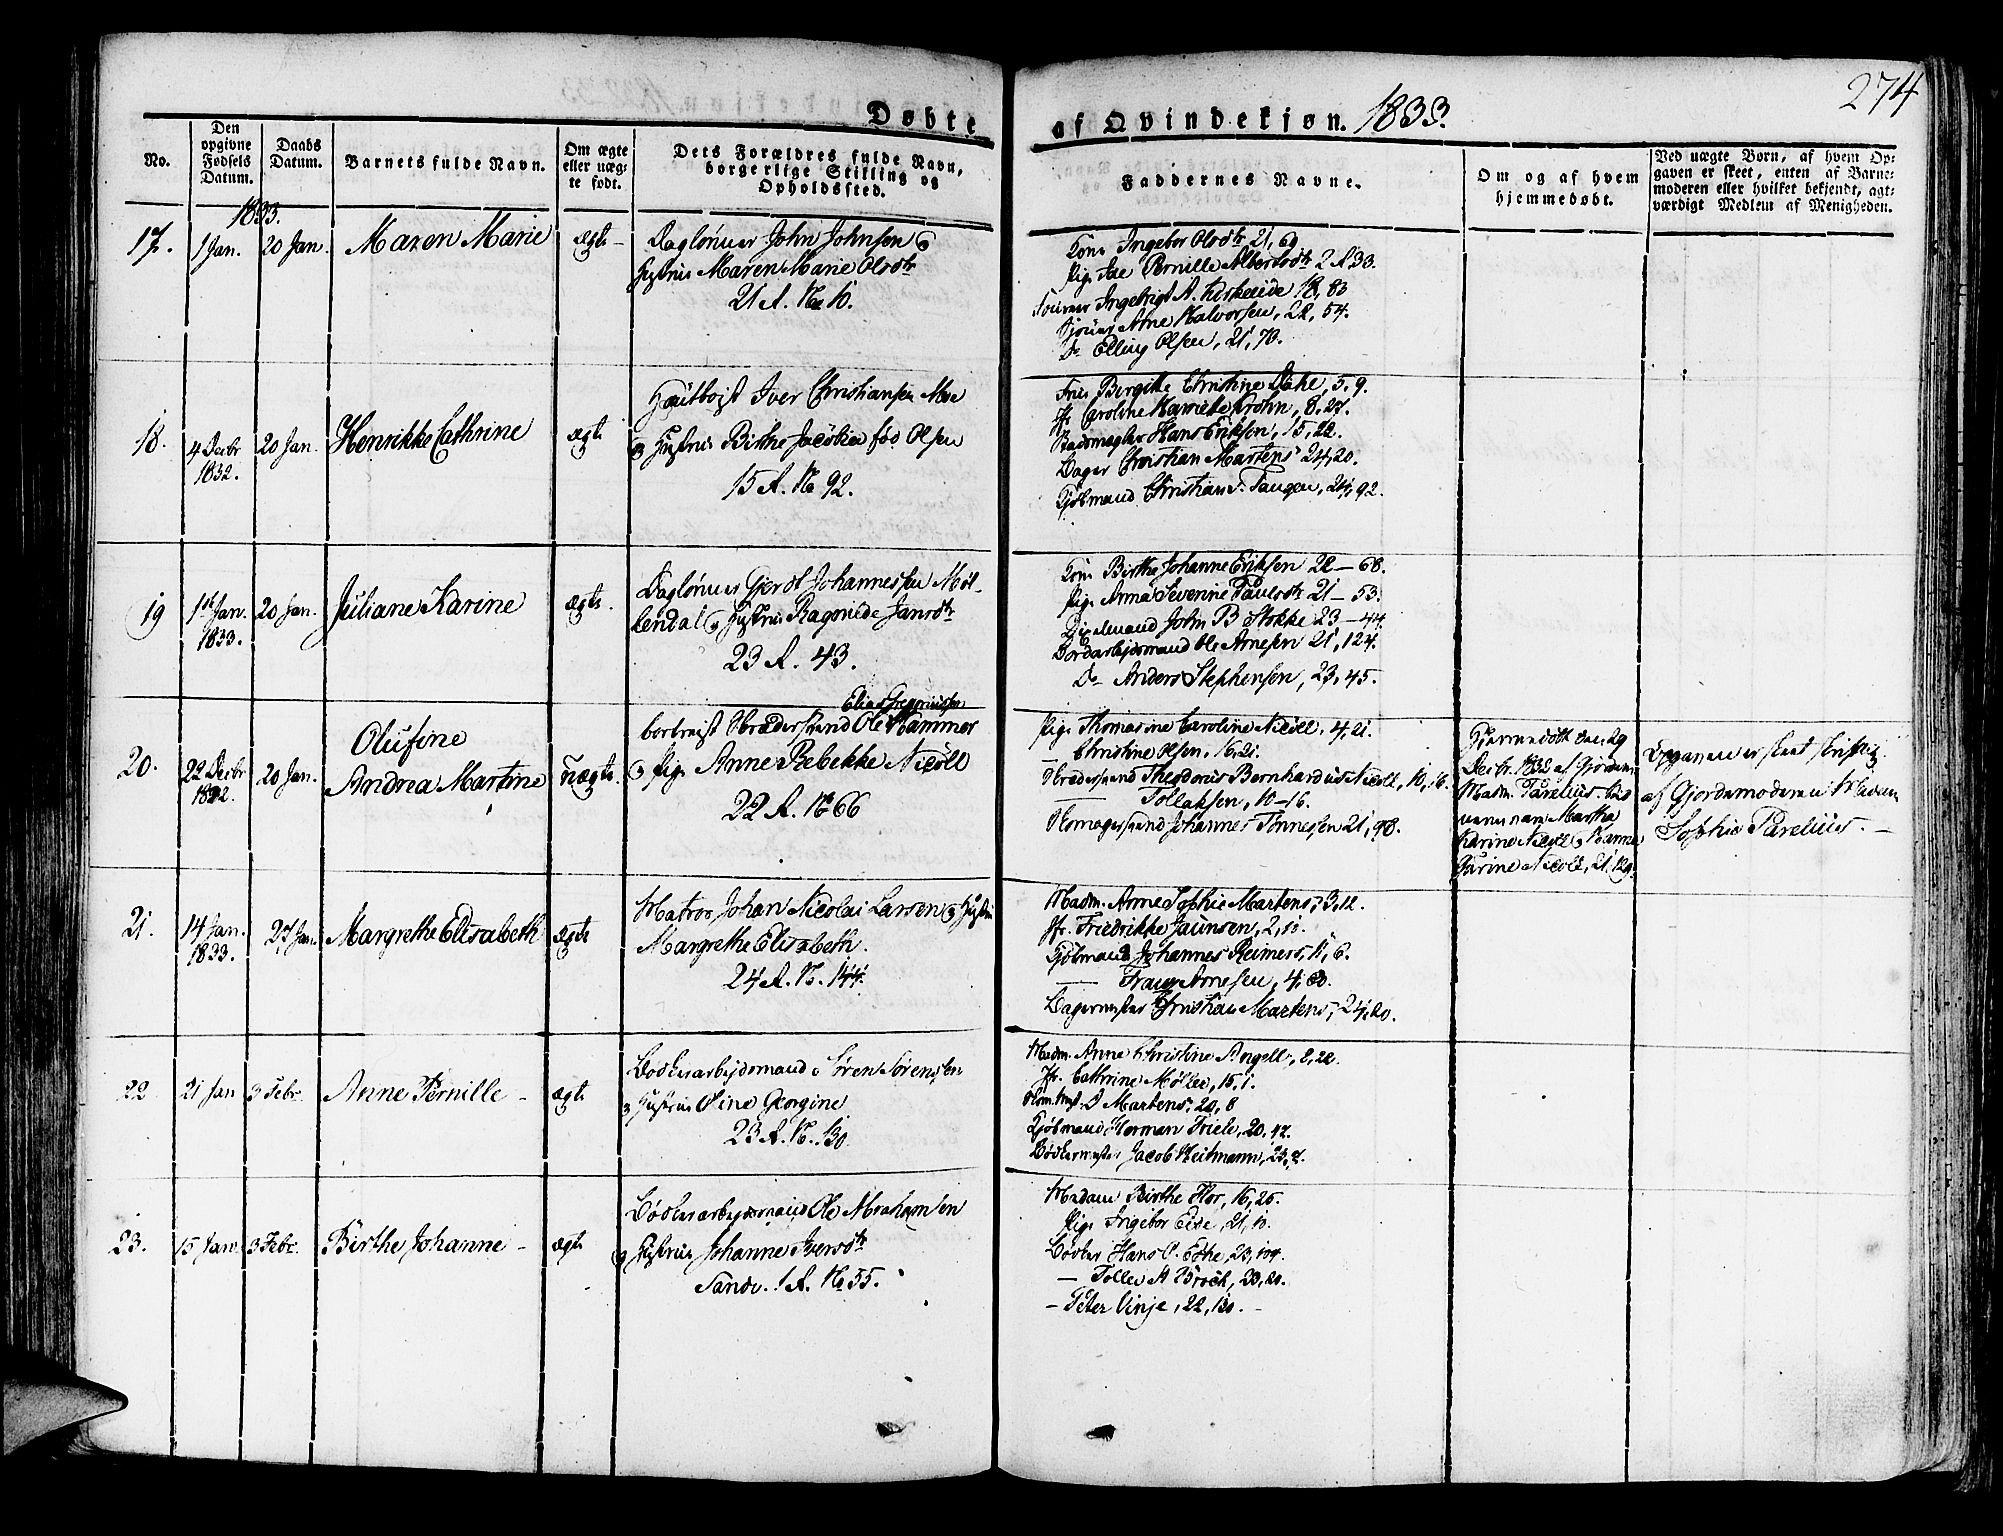 274
Døbte af Qvindekjøn. 1833.
No.
Den opgivne Fødsels Datum.
Daabs Datum.
Barnets fulde Navn.
Om ægte eller uægte født.
Dets Forældres fulde Navn, borgerlige Stilling og Opholdssted.
Faddernes Navne.
Om og af hvem hjemmedøbt.
Ved uægte Børn, af hvem Opgaven er skeet, enten af Barnemoderen eller hvilket bekjendt, agtværdigt Medlem af Menigheden.
1833.
17. 1 Jan. 20 Jan. Maren Marie ægte
Daglønner John Johnsen &
Hustrue Maren Marie Olsdtr
21 A. No 10.
Kone Ingebor Olsdtr 21, 69
Pige Pernille Albertsdtr 2 A 33.
Ingebrigt A. 18, 83
Arne Halvorsen, 22, 54.
Do Elling Olsen, 21, 70.
18. 4 Decbr 1832. 20 Jan. Henrikke Cathrine ægte
Houtboist Iver Christiansen Moe
& Hustrue Birthe Jacobia fød Olsen
15 A. No 92.
Frue Bergitte Christine Dahe, 5, 9.
Jfr Caroline Harriete Krohn, 8, 27.
Hans Eriksen, 15, 22.
Bager Christian Martens 24, 20.
Kjøbmand Christian T. Tangen, 24, 92.
19 1ste Jan. 1833. 20 Jan. Juliane Karine ægte.
Daglønner Gjert Johannessen Møl-
lendal & Hustrue Ragnilde Jansdtr
23 A. 43.
Kone Birthe Johanne Eriksen 22 - 68.
Pige Anna Severine Paulsdtr 21 - 53.
John B Stokke 23 - 44
Bordarbejdsmand Ole Arnesen 21, 124.
Do Anders Stephensen, 23, 45.
20. 22 Decbr 1832 20 Jan. Olufine
Andrea Martine uægte.
Elias Gregoriussen
bortreist Ole Hammer
& Pige Anne Rebekke Nicoll
22 A. No 66
Pige Thomasine Caroline Nicoll, 4, 21.
— Christine Olsen, 16, 21.
Theodorus Bernhardus Nicoll, 10, 16.
— Tollaksen, 10 - 16.
Johannes Tønnessen 21, 98.
Hjemmedøbt den 29
Decbr. 1832 af Gjordem.
Madm. Parelius.
Martha
Karine Nicoll & Hanna
Karine Nicoll, 21, 129.
Opgaven er skeet skriftlig
af Gjordemoderen Madam
Sophie Parelius. —
21. 14 Jan. 1833. 27 Jan. Margrethe Elisabeth ægte
Matros Johan Nicolai Larsen & Hustrue
Margrethe Elisabeth.
24 A. No. 144.
Madm. Anne Sophie Martens, 3, 12.
Jfr. Friedrikke Jaunsen, 2, 10.
Kjøbmand Johannes Reimers, 11, 6.
— Frans Arnesen, 4,
Bagermester Christian Martens, 24, 20.
22 21 Jan 3 Febr. Anne Pernille - ægte
Bødkerarbejdsmand Søren Sørensen
& Hustrue Oline Georgine
23 A. No. 130
Madm. Anne Christine Angell, 8, 22.
Jfr. Cathrine Møller, 15, 1.
Martens, 20, 8
Kjøbmand Herman Friele, 20, 42.
Bødkermester Jacob Heitmann, 23, 2.
23. 15 Jan. 3 Febr. Birthe Johanne - ægte
Bødkerarbejdsmand Ole Abrahamsen
& Hustrue Johanne Iversdtr
Sandv. 1 A. No 55.
Madam Birthe Flor, 16, 26.
Pige Ingebor Eide, 21, 10.
Bødker Hans O. Eske, 23, 109.
— Tollev A Broch, 23, 20.
— Peter Vinje, 22, 130. —